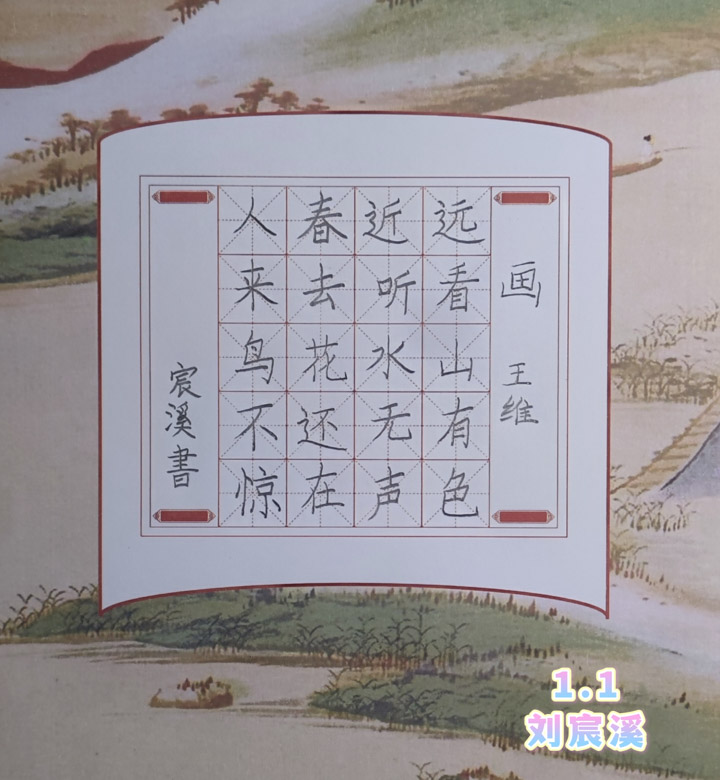 画
王维
远看山有色
近听水无声
春去花还在
人来鸟不惊
宸溪書
1.1
刘宸溪